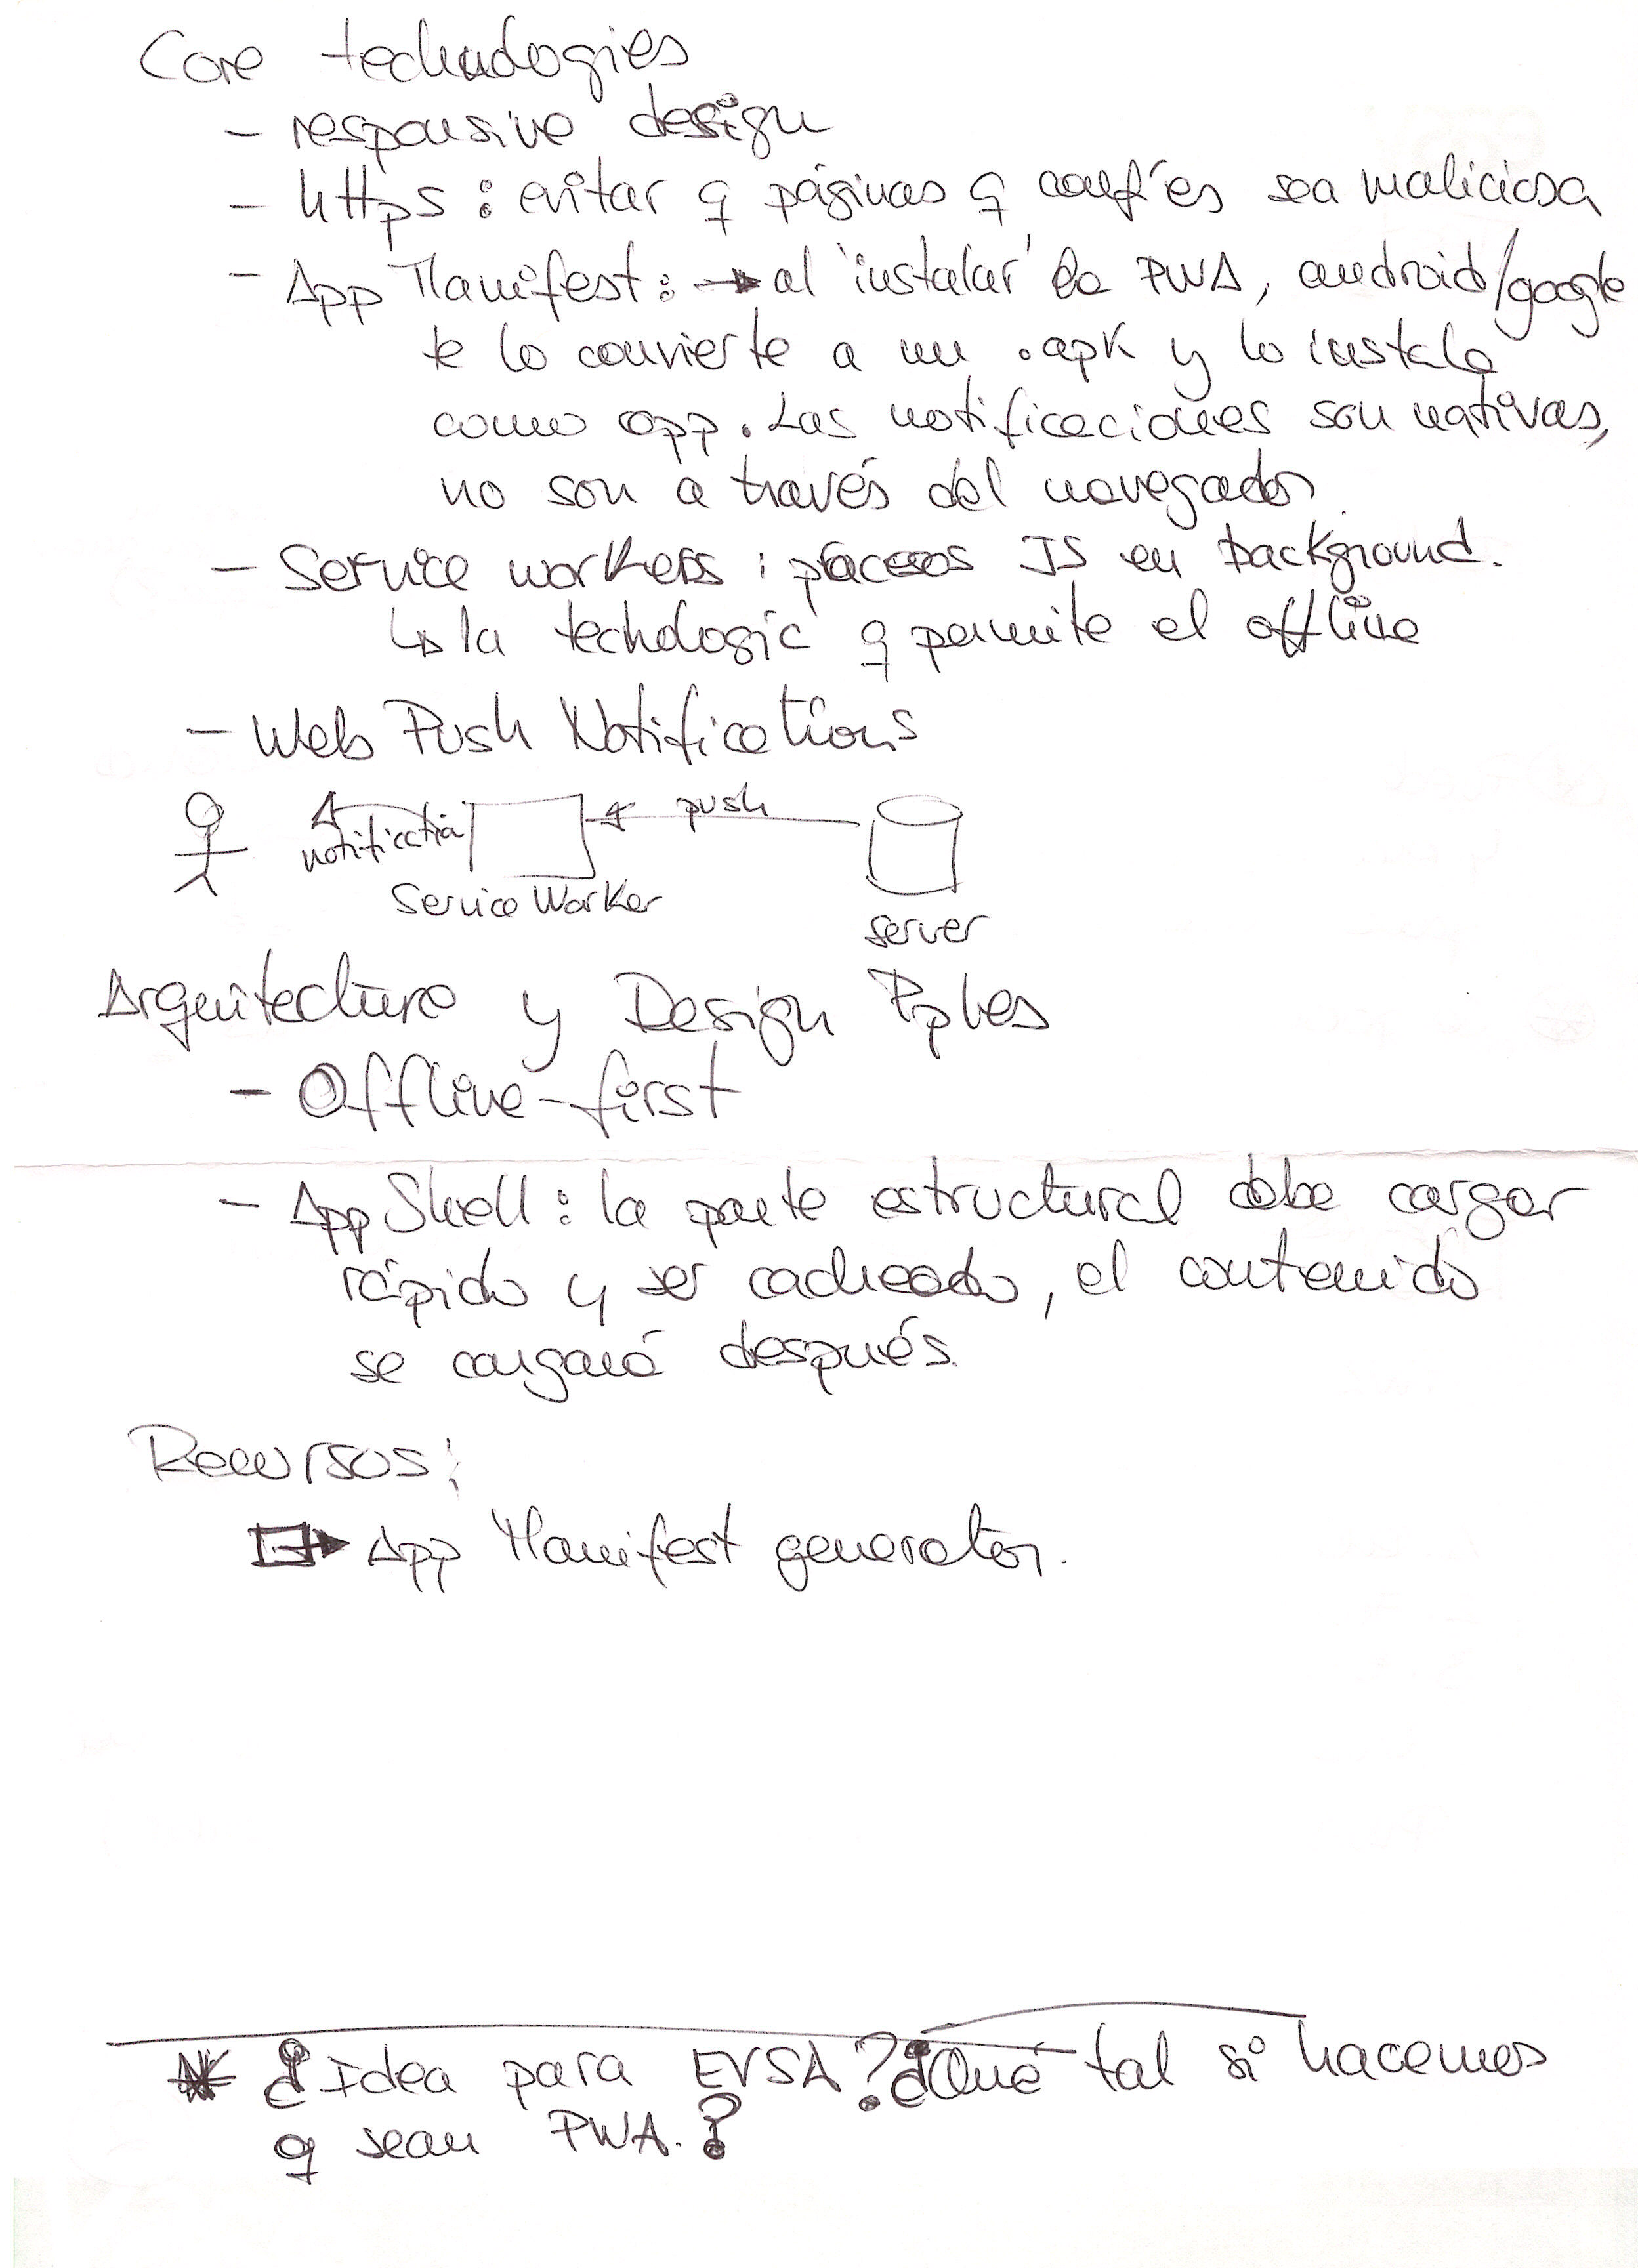 Core technologies
- responsive design
- https : evitar q páginas q confíes sea maliciosa
- App Manifest: → al 'instalar' la PWA, android/google
te lo convierte a un .apk y lo instala
como app. Las notificaciones son nativas,
no son a través del navegador.
- Service workers : procesos JS en background.
↳ la techologic q permite el offline
- Web Push Notifications
push
notification
Service Worker
server
Arquitecture y Design Pples
- Offline-first
- App Shell : la parte estructural debe cargar
rápido y ser cacheado, el contenido
se cargará después.
Recursos:
→ App Manifest generator.
* ¿Idea para EVSA? ¿Qué tal si hacemos
q sean PWA.?